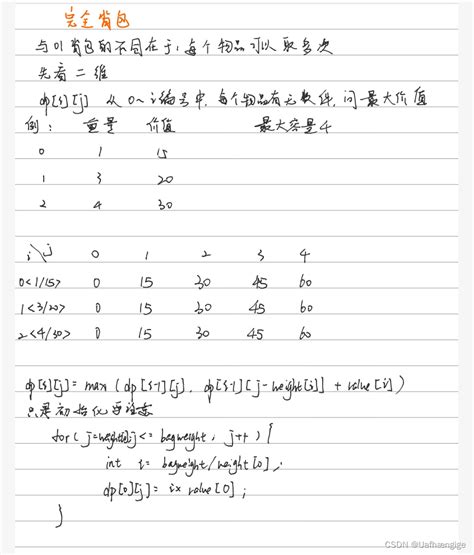 完全背包
与01背包的不同在于，每个物品可以取多次
先看二维
dp[i][j] 从0~i编号中，每个物品有无数件，问最大价值
例： 重量 价值 最大容量4
0 1 15
1 3 20
2 4 30
i\j 0 1 2 3 4
0<1/15> 0 15 30 45 60
1<3/20> 0 15 30 45 60
2<4/30> 0 15 30 45 60
dp[i][j]= max(dp[i-1][j], dp[i-1][j-weight[i]] + value[i])
只是初始化要注意
for(j=weight[0];j<= bagweight, j++){
int i= bagweight/weight[0];
dp[0][j]= i× value[0];
}
CSDN @Uafhængige